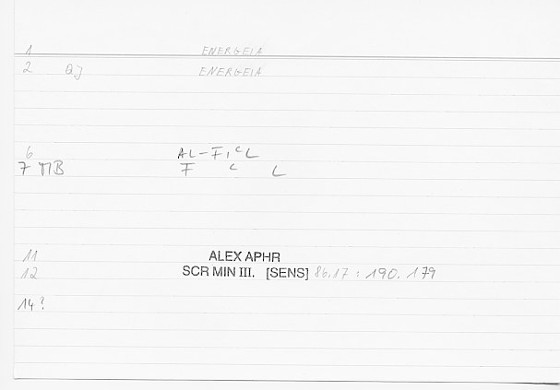 1 ENERGEIA
2 QJ ENERGEIA
6 AL-FIʿL
7 MB F ʿ L
11 ALEX APHR
12 SCR MIN III. [SENS] 86.17 : 190.179
14?